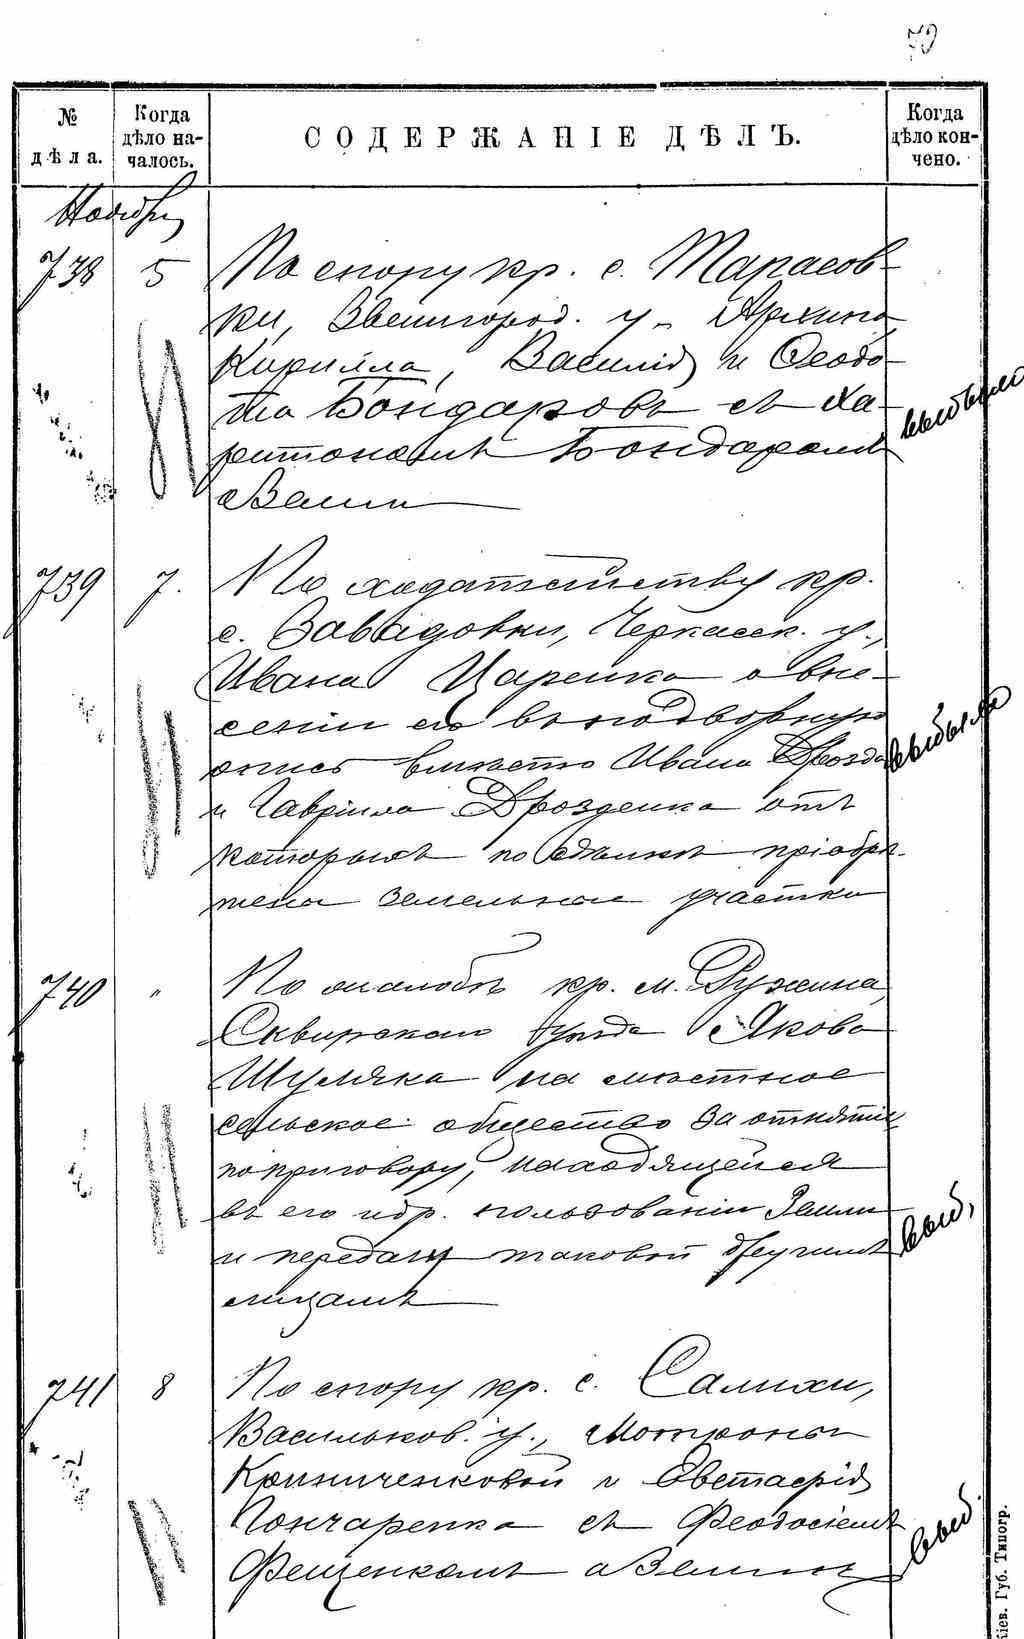 79
№ дѣла.
Когда дѣло началось.
СОДЕРЖАНІЕ ДѢЛЪ.
Когда дѣло кончено.
Ноября
738 5 По спору кр. с. Тарасов-
ки, Звенигород. у. Архипа
Кирилла, Василія и Ѳеодо-
та Бондаровъ съ Ха-
ритономъ Бондаромъ
о земли
выбыло
739 7. По ходатайству кр.
с. Завадовки, Черкасск. у.,
Ивана Царенка о вне-
сеніи его въ подворную
опись вмѣсто Ивана Дрозда
и Гавріила Дрозденка отъ
которыхъ по сдѣлкѣ пріобрѣ-
тены земельные участки
выбыло
740 " По жалобѣ кр. м. Ружина,
Сквирскаго уѣзда Якова
Шуляка на мѣстное
сельское общество за отнятіе,
по приговору, находящейся
въ его пользованіи земли
и передачи таковой другимъ
лицамъ
выб,
741 8 По спору кр. с. Салихи,
Васильков. у., Мотроны
Криниченковой и Евстафія
Гончаренка съ Феодосіемъ
Фещенкомъ о земли
выб.
Кіев. Губ. Типогр.